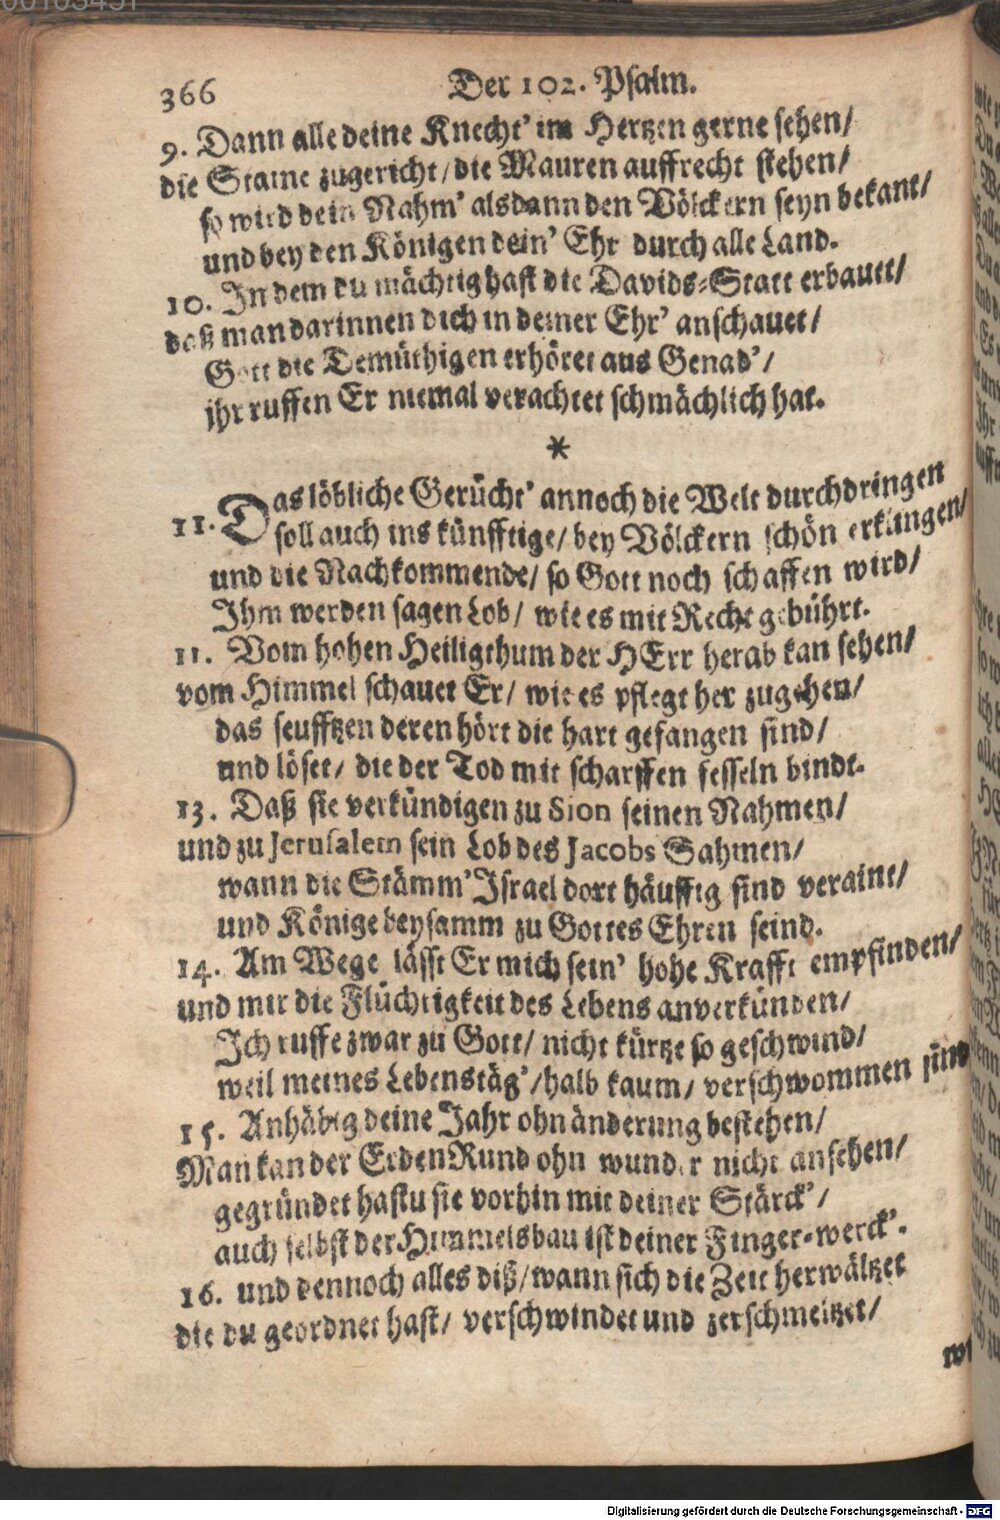 366 Der 102. Psalm.
9. Dann alle deine Knecht' im Hertzen gerne sehen/
die Staine zugericht/ die Mauren auffrecht stehen/
so wird dein Nahm' alsdann den Völckern seyn bekant/
und bey den Königen dein' Ehr durch alle Land.
10. In dem du mächtig hast die Davids-Statt erbauet/
daß man darinnen dich in deiner Ehr' anschauet/
Gott die Demüthigen erhöret aus Genad'/
ihr ruffen Er niemal verachtet schmächlich hat.
*
11. Das löbliche Gerücht' annoch die Welt durchdringen
soll auch ins künfftige/ bey Völckern schön erklingen/
und die Nachkommende/ so Gott noch schaffen wird/
Ihm werden sagen Lob/ wie es mit Recht gebührt.
11. Vom hohen Heiligthum der HErr herab kan sehen/
vom Himmel schauet Er/ wie es pflegt her zugehen/
das seufftzen deren hört die hart gefangen sind/
und löset/ die der Tod mit scharffen fesseln bindt.
13. Daß sie verkündigen zu Sion seinen Nahmen/
und zu Jerusalem sein Lob des Jacobs Sahmen/
wann die Stämm' Israel dort häuffig sind veraint/
und Könige beysamm zu Gottes Ehren seind.
14. Am Wege lässt Er mich sein' hohe Krafft empfinden/
und mir die Flüchtigkeit des Lebens anverkünden/
Ich ruffe zwar zu Gott/ nicht kürtze so geschwind/
weil meines Lebenstäg'/ halb kaum/ verschwommen sind
15. Anhäbig deine Jahr ohn änderung bestehen/
Man kan der Erden Rund ohn wunder nicht ansehen/
gegründet hastu sie vorhin mit deiner Stärck'/
auch selbst der Himmelsbau ist deiner Finger-werck'.
16. und dennoch alles diß/ wann sich die Zeit herwältzet
die du geordnet hast/ verschwindet und zerschmeltzet/
Digitalisierung gefördert durch die Deutsche Forschungsgemeinschaft - DFG